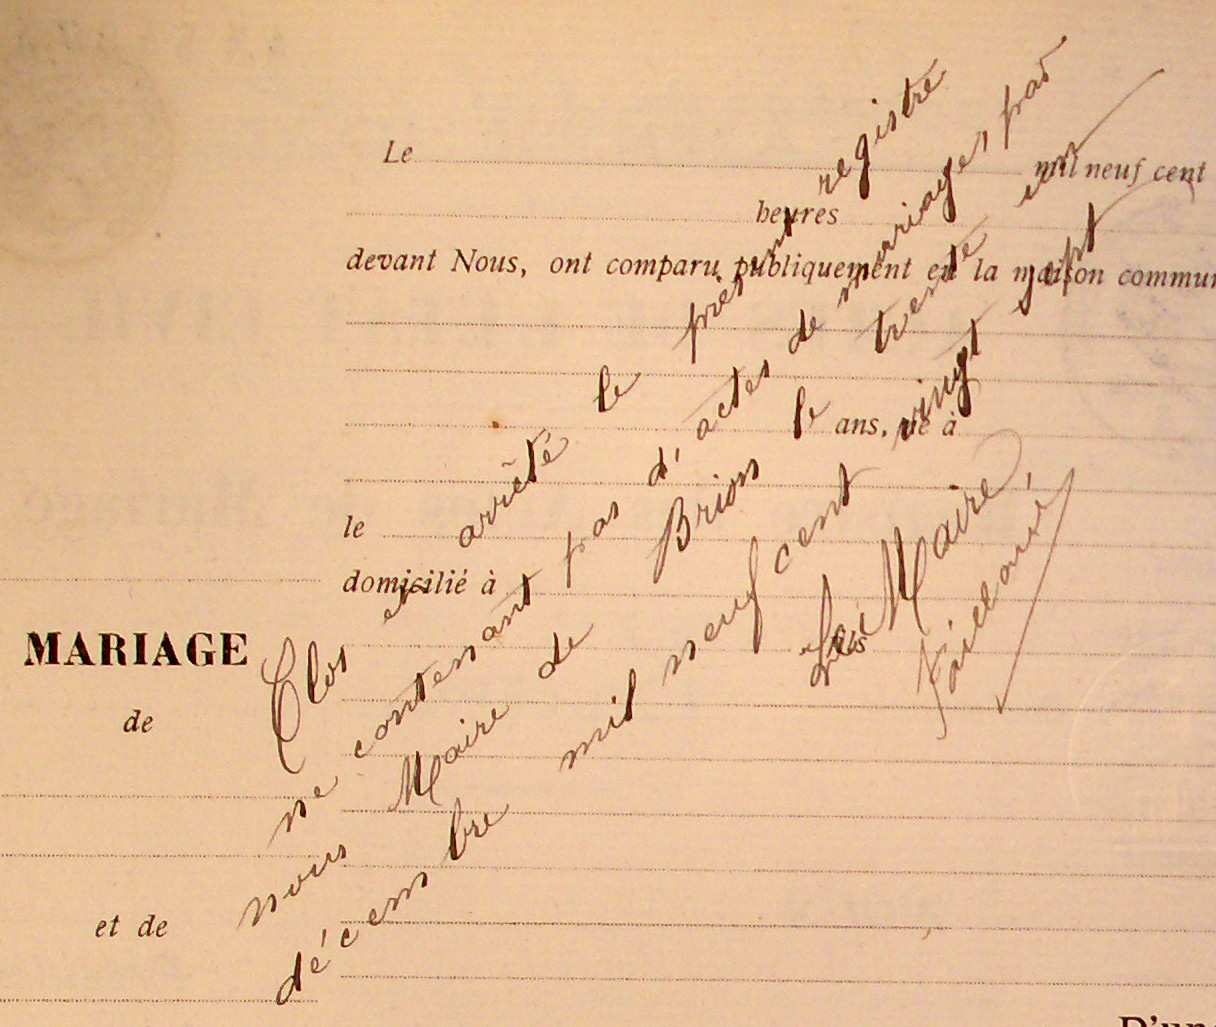 Le mil neuf cent
heures
devant Nous, ont comparu publiquement en la maison commun
ans, né à
le
domicilié à
fils
MARIAGE
de
et de
D'une
Clos et arrêté le présent registre
ne contenant pas d'actes de mariages par
nous Maire de Brion le trente un
décembre mil neuf cent vingt sept
Le Maire,